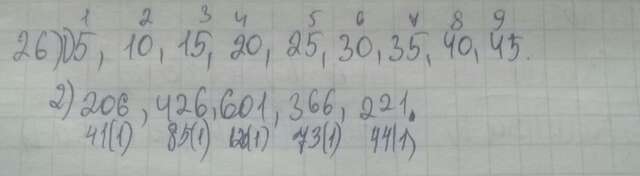 1 2 3 4 5 6 7 8 9
26)1) 5, 10, 15, 20, 25, 30, 35, 40, 45.
2) 206, 426, 601, 366, 221.
41(1) 85(1) 120(1) 73(1) 44(1)